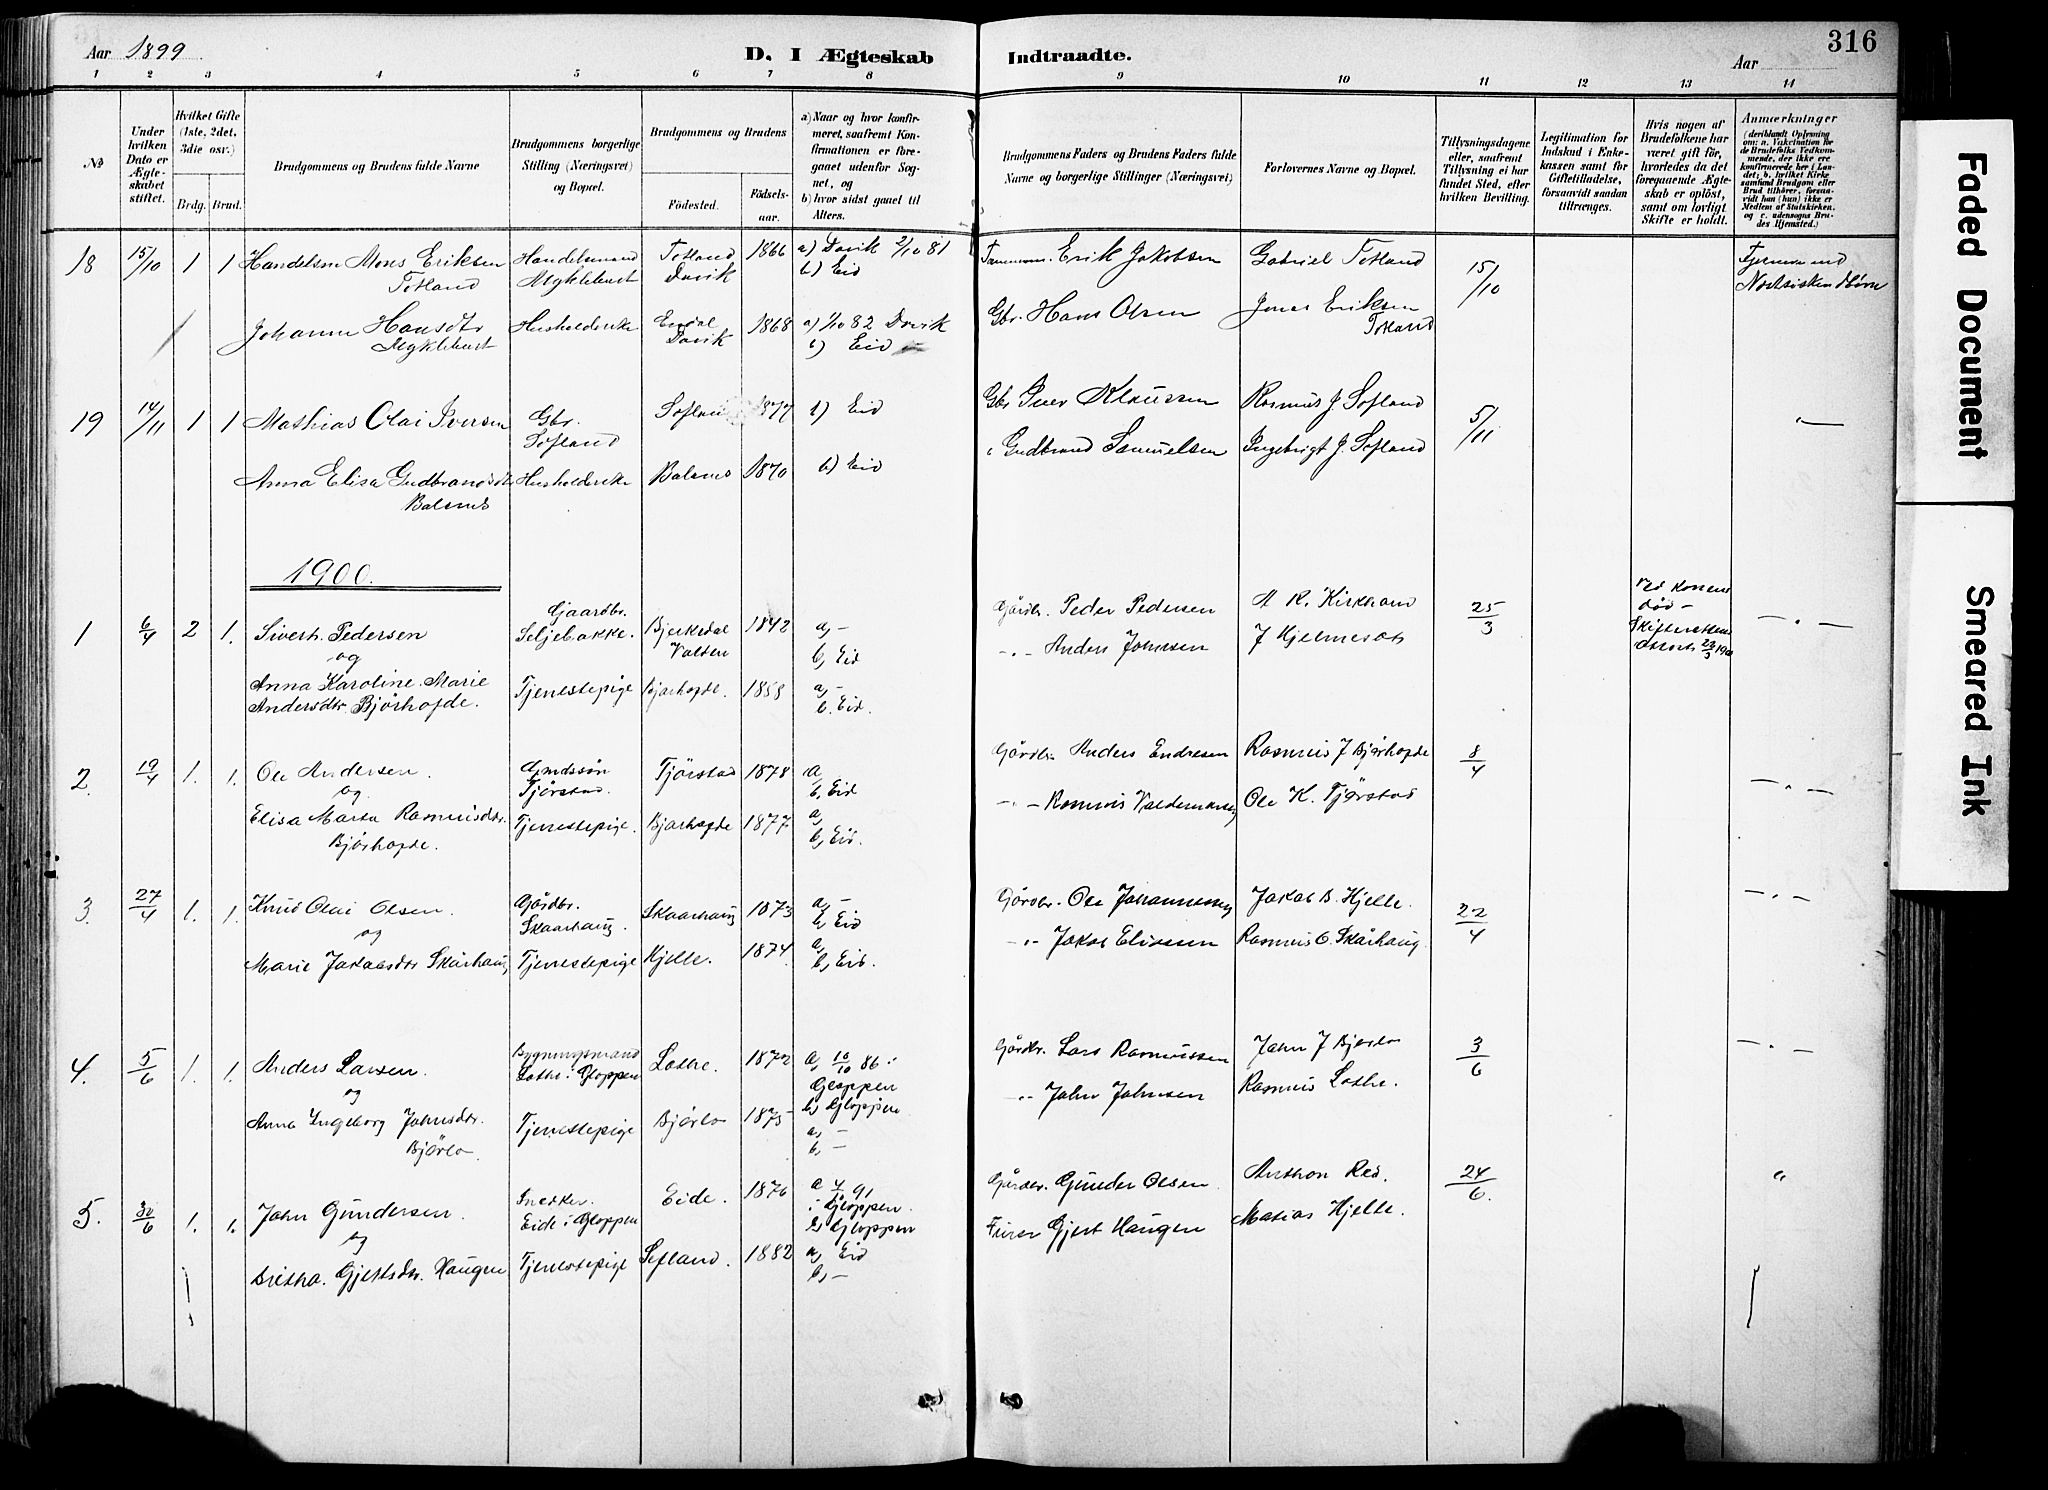 316
Aar 1899
D. I Ægteskab Indtraadte.
Aar
1 2 3 4 5 6 7 8 9 10 11 12 13 14
No
Under hvilken Dato er Ægteskabet stiftet.
Hvilket Gifte (1ste, 2det, 3die osv.)
Brdg. Brud.
Brudgommens og Brudens fulde Navne
Brudgommens borgerlige Stilling (Næringsvei) og Bopæl.
Brudgommens og Brudens
Fødested.
Fødselsaar.
a) Naar og hvor konfirmeret, saafremt Konfirmationen er foregaaet udenfor Sognet, og
b) hvor sidst gaaet til Alters.
Brudgommens Faders og Brudens Faders fulde Navne og borgerlige Stillinger (Næringsvei)
Forlovernes Navne og Bopæl.
Tillysningsdagene eller, saafremt Tillysning ei har fundet Sted, efter hvilken Bevilling.
Legitimation for Indskud i Enkekassen samt for Giftetilladelse, forsaavidt saadan tiltrænges.
Hvis nogen af Brudefolkene har været gift før, hvorledes da det foregaaende Ægteskab er opløst, samt om lovligt Skifte er holdt.
Anmærkninger
18 15/10 1 1 Handelsm Mons Eriksen Handelsmand Totland 1866 a) Davik 2/10 81 Erik Jakobsen Gabriel Totland 15/10
Totland Myklebust Davik b) Eid
Johanne Hansdtr Husholderske Endal 1868 a) 1/10 82 Davik Gbr. Hans Olsen Jonas Eriksen
Myklebust Davik b) Eid Totland
19 14/11 1 1 Mathias Olai Iversen Gbr. 1877 b) Eid Gbr Iver Klaussen Rasmus J. Sofland 5/11
Sofland
Anna Elisa Gudbrandsdtr Husholderske Balsnes 1870 b) Eid Gudbrand Samuelsen Ingebrigt J. Sofland
Balsnes
1900.
1 6/4 2 1. Sivert. Pedersen Gaardbr. Bjerkedal 1842 a, - Gårdbr. Peder Pedersen 25/3 Ved Konens
og Seljebakke. Volden b, Eid død -
Anna Karoline Marie Tjenestepige Bjørhovde. 1858 a, - -"- Anders Johnsen J Hjelmeset
Andersdtr. Bjørhovde. b. Eid.
2. 19/4 1. 1. Ole Andersen. Tjørstad 1878 a, Gårdbr. Anders Endresen Rasmus J Bjørhovde 8/4 -"-
og Tjørstad. b, Eid
Elisa Marta Rasmusdtr. Tjenestepige. Bjørhovde 1877. a, -"- Rasmus Valdemarsen Ole K. Tjørstad
Bjørhovde. b, Eid.
3. 27/4 1. 1. Knud Olai Olsen. Gårdbr. Skaarhaug 1873 a, - Gårdbr. Ole Johannessen Jakob B. Hjelle. 22/4 -"-
og Skaarhaug. b, Eid
Marie Jakobsdtr Skårhaug Tjenestepige Hjelle. 1874 a, -"- Jakob Eliassen Rasmus O. Skårhaug.
b, Eid.
4. 5/6 1. 1. Anders Larsen. Bygningsmand Lothe. 1872 a, 10/10 86 i Gårdbr. Lars Rasmussen John J Bjørlo 3/6 -"-
og Lothe i Gloppen Gloppen
b) Gloppen
Anna Ingeborg Johnsdtr. Tjenestepige Bjørlo 1875 a, - -"- John Johnsen Rasmus Lothe.
Bjørlo. b, -
5. 30/6 1. 1. John Gundersen. Snedker. Eide. 1870 a Gårdbr. Gunder Olsen Anthon Red. 24/6. "
og Eide i Gloppen i Gloppen.
b) Gloppen
Bretha. Gjertsdtr. Haugen Tjenestepige Sefland. 1882 a, Eid Gjert Haugen Matias Hjelle.
b, -
Faded Document
Smeared Ink